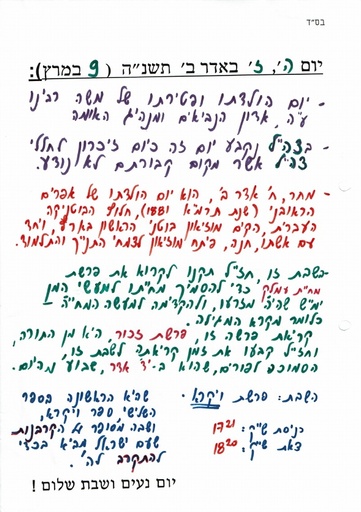 בס"ד
יום ה', ז' באדר ב' תשנ"ה ( 9 במרץ):
- יום הולדתו ופטירתו של משה רבינו
ע"ה, אדון הנביאים ומנהיג האומה
- בצה"ל נקבע יום זה כיום זיכרון לחללי
צה"ל אשר מקום קבורתם לא נודע.
- מחר, ח' אדר ב', הוא יום הולדתו של אפרים
הראובני (שנת תרמ"א 1881), חלוץ הבוטניקה
העברית, הקים מוזיאון בוטני הראשון בארץ, ויחד
עם אשתו, חנה, פיתח מוזיאון לצמחי התנ"ך והתלמוד.
- בשבת זו, חז"ל תקנו לקרוא את פרשת
מח"ת עמלק כדי להסמיך מחייתו למעשי המן
ימ"ש שהיה מזרעו, ולהקדימה למעשה המחייה -
כלומר מקרא המגילה.
קריאת פרשה זו, פרשת זכור, היא מן התורה,
וחז"ל קבעו את זמן קריאתה לשבת זו,
הסמוכה לפורים, שהוא ב-י"ד אדר, שבוע מהיום.
השבת: פרשת ויקרא.
כניסת ש"ק: 17²¹
צאת ש"ק: 18²⁰
שהיא הראשונה בספר
השלישי ספר ויקרא,
ושבה מסופר על הקרבנות
שעם ישראל מביא בכדי
להתקרב לה'.
יום נעים ושבת שלום !